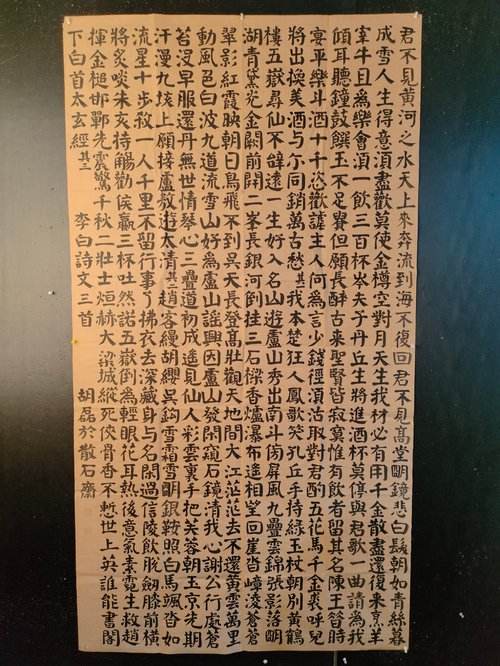 君不見黃河之水天上來奔流到海不復回君不見高堂明鏡悲白髮朝如青絲暮
成雪人生得意須盡歡莫使金樽空對月天生我材必有用千金散盡還復來烹羊
宰牛且為樂會須一飲三百杯岑夫子丹丘生將進酒杯莫停與君歌一曲請為我
傾耳聽鐘鼓饌玉不足貴但願長醉古來聖賢皆寂寞惟有飲者留其名陳王昔時
宴平樂斗酒十千恣歡謔主人何為言少錢徑須沽取對君酌五花馬千金裘呼兒
將出換美酒与尔同銷萬古愁其一我本楚狂人鳳歌笑孔丘手持綠玉杖朝別黃鶴
樓五嶽尋仙不辭遠一生好入名山遊廬山秀出南斗傍屏風九疊雲錦張影落明
湖青黛光金闕前開二峯長銀河倒挂三石梁香爐瀑布遙相望回崖沓嶂凌蒼蒼
翠影紅霞映朝日鳥飛不到吳天長登高壯觀天地間大江茫茫去不還黃雲萬里
動風色白波九道流雪山好為廬山謠興因廬山發閑窺石鏡清我心謝公行處蒼
苔沒早服還丹無世情琴心三疊道初成遙見仙人彩雲裏手把芙蓉朝玉京先期
汗漫九垓上願接盧敖遊太清其二趙客縵胡纓吳鉤霜雪明銀鞍照白馬颯沓如
流星十步殺一人千里不留行事了拂衣去深藏身与名閑過信陵飲脫劍膝前橫
將炙啖朱亥持觴勸侯嬴三杯吐然諾五嶽倒為輕眼花耳熱後意氣素霓生救趙
揮金槌邯鄲先震驚千秋二壯士烜赫大梁城縱死俠骨香不慙世上英誰能書閣
下白首太玄經其三 李白詩文三首 胡磊於散石齋